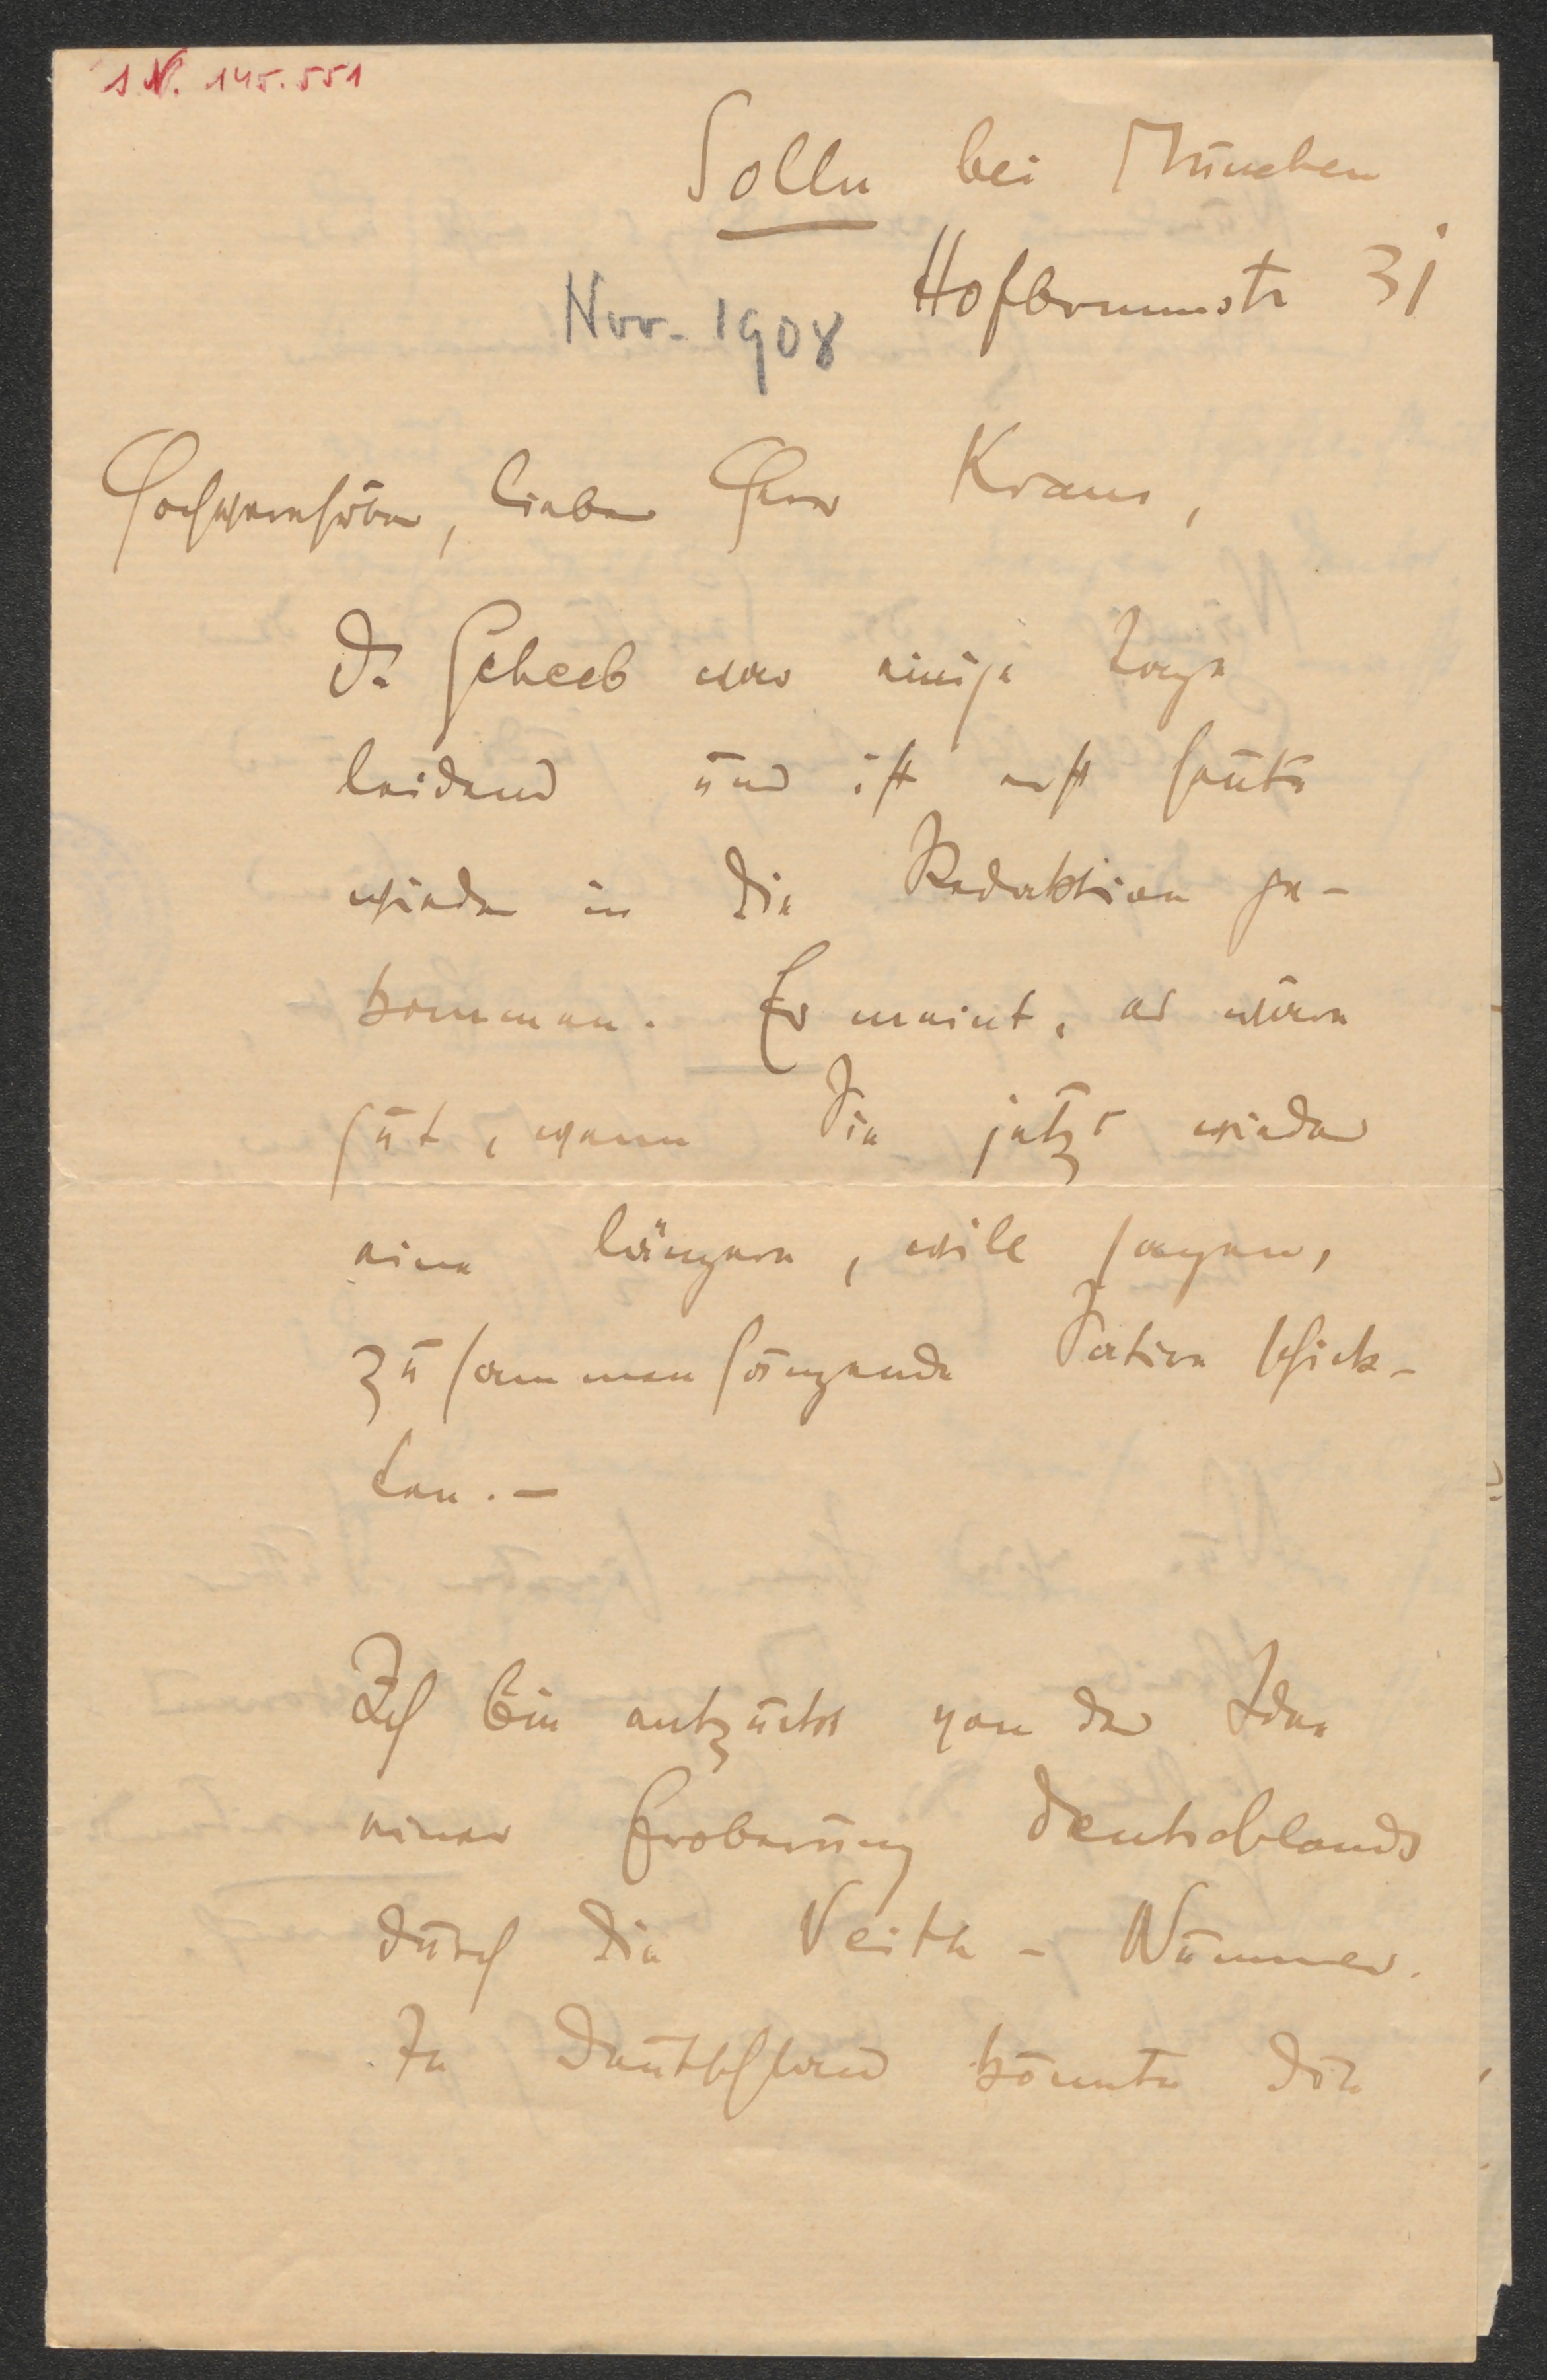 I.N. 145.551
Solln bei München
Hofbrunnstr 31
Nov. 1908
Hochverehrter, lieber Herr Kraus,
Dr Scheeb war einige Tage
leidend und ist erst heute
wieder in die Redaktion ge-
kommen. Er meint, es wäre
gut, wenn Sie jetzt wieder
eine längere, will sagen,
zusammenhängende Satire schick-
ten. –
Ich bin entzückt von der Idee
einer Eroberung Deutschlands
durch die Veith - Nummer.
In Deutschland könnte die